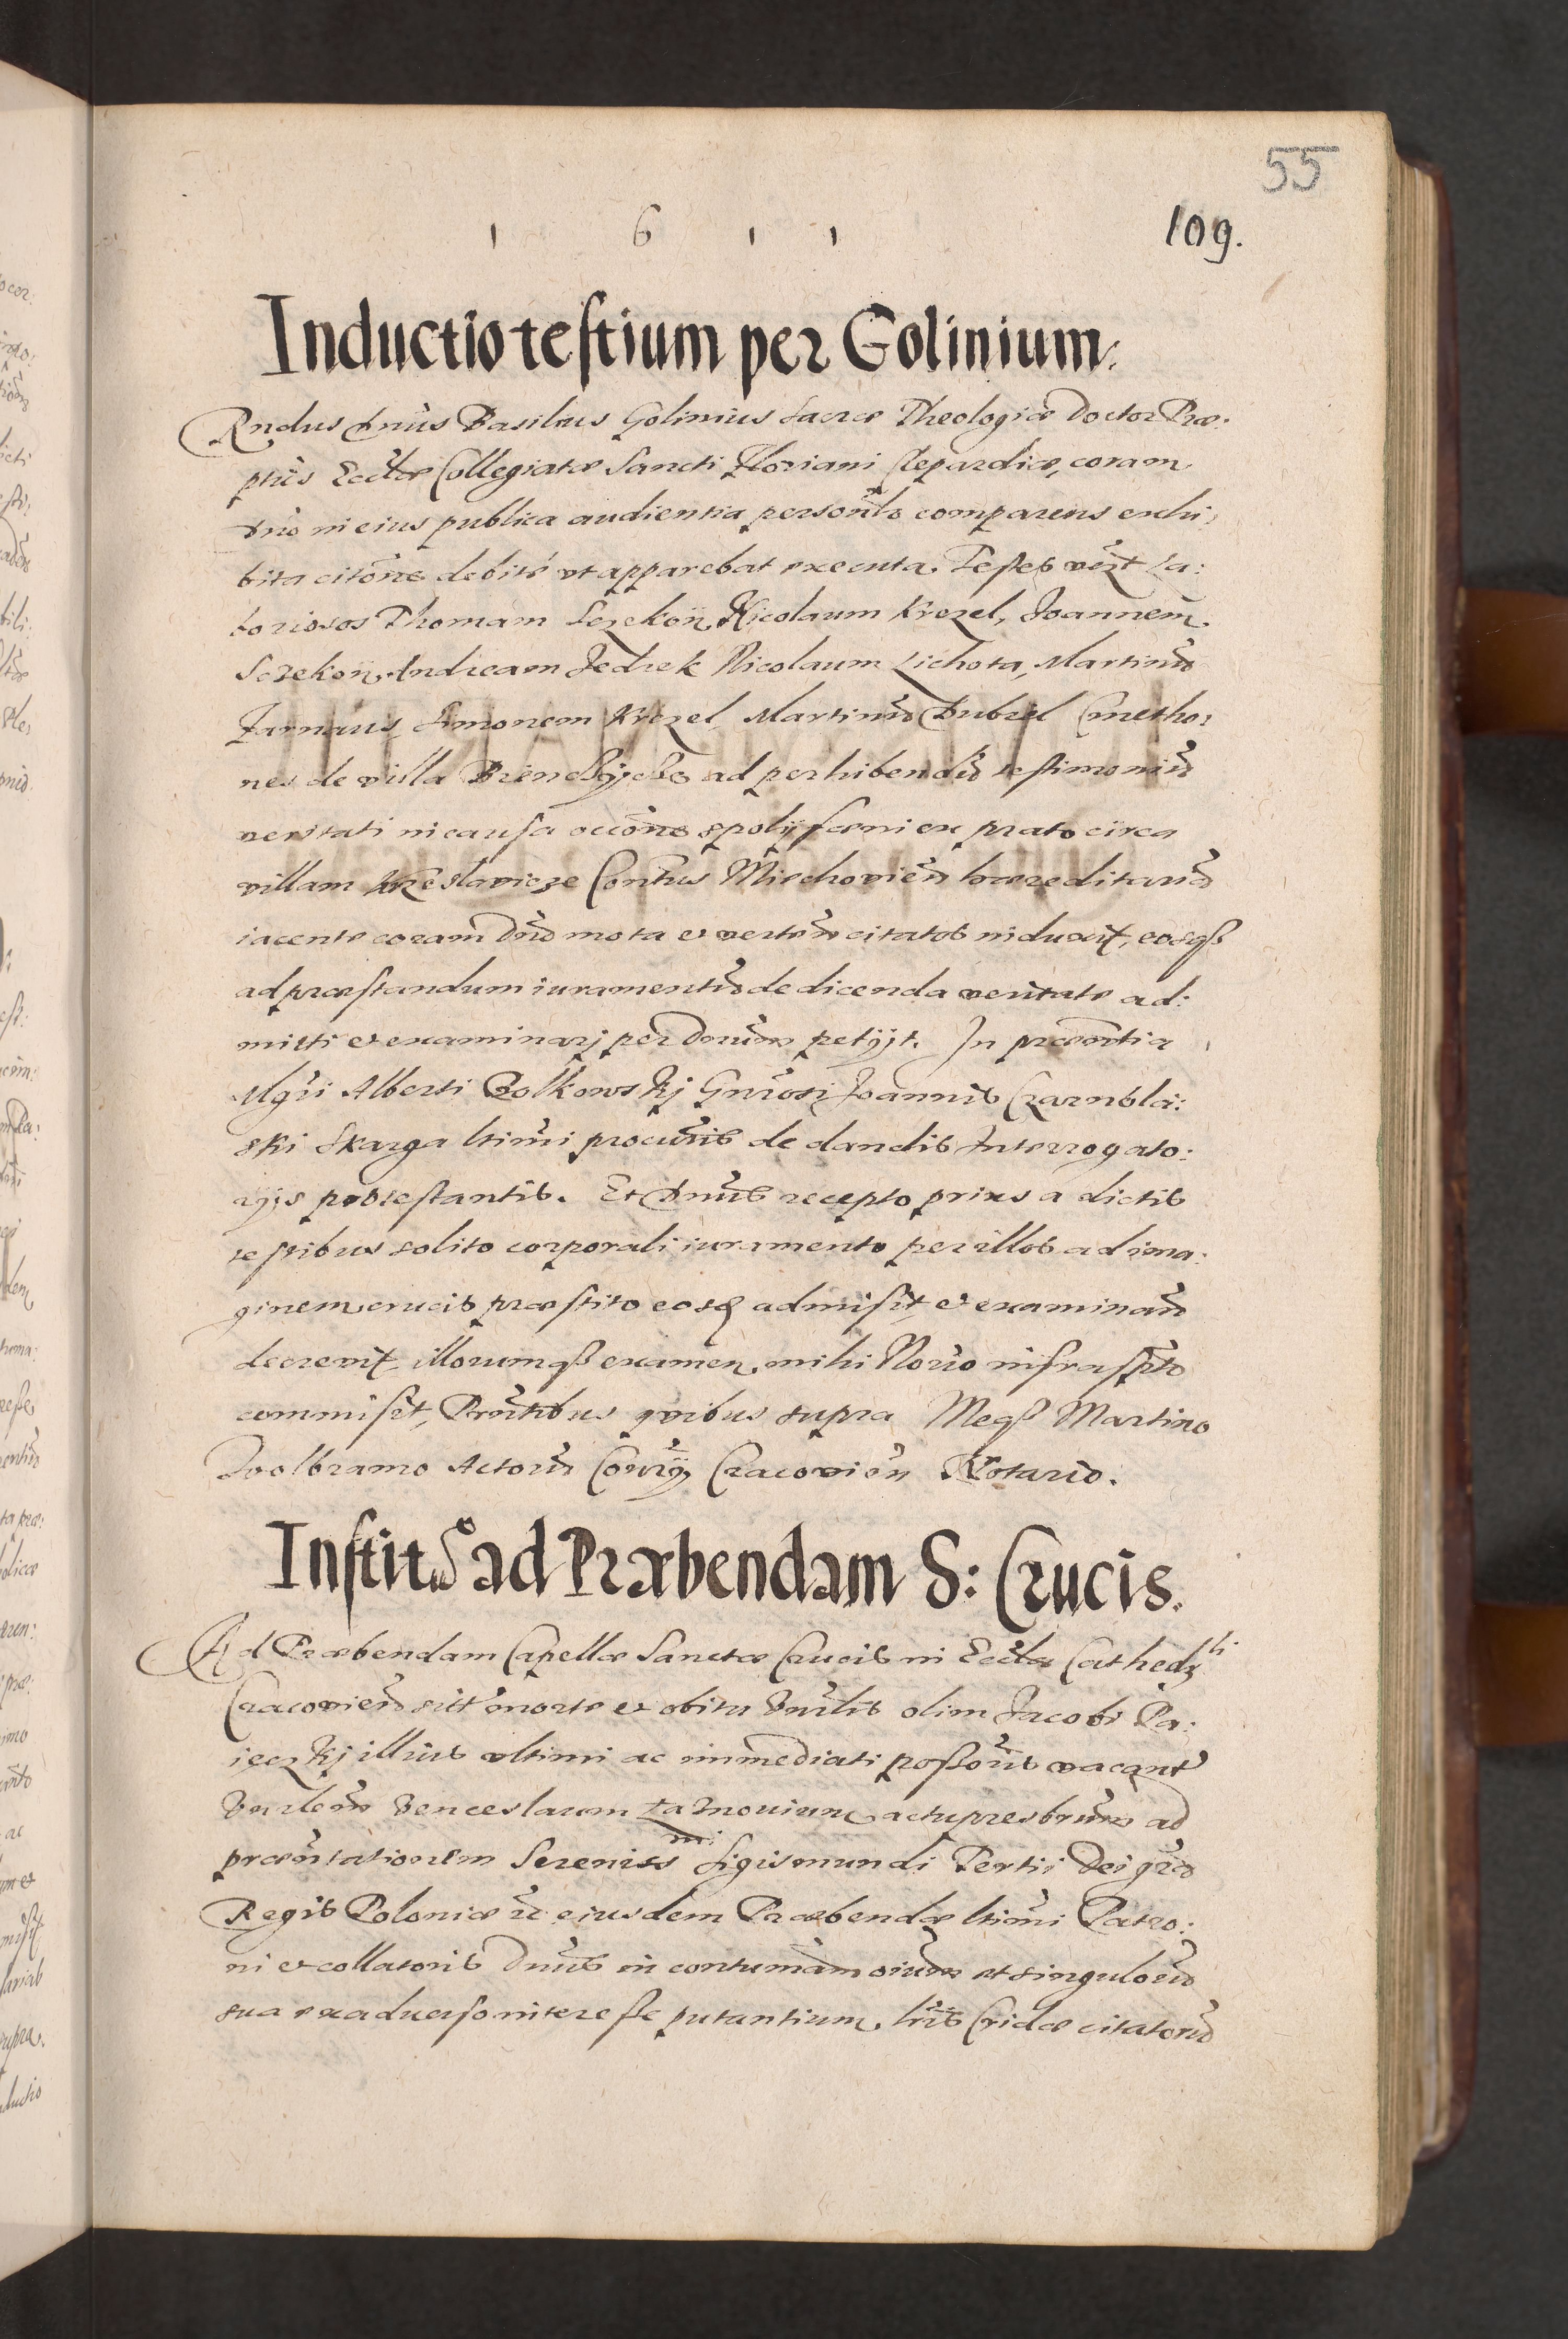 55
1 6 1 1
109.
Inductio testium per Golinium.
Rndus Dnus Basilius Golinius Sacræ Theologiæ Doctor Præ:
ptus Eccltæ Collegiatæ Sancti Floriani Clepardiæ, coram
Dno in eius publica audientia personlr comparens exhi,
bita citone debite ut apparebat executa. Testes vezt La:
boriosos Thomam Sczekoń, Nicolaum Krezel, Joannem
Sczekoń, Andream Jedrek Nicolaum Lichota, Martinū
Jarnaus, Simonem Krezel, Martinū Dubzel Cmetho:
nes de villa ad perhibendū testimoniū
veritati in causa occōne spolij fæni ex prato circa
villam Krzeslavicze Contus Miechovien hæreditariā
iacente coram Dno mota et verten citatos induxit, eosqß
ad præstandum iuramentū de dicenda veritate ad:
mitti et examinari per Dnum petijt. In præsentia
Mgri Alberti Bolkowskj Gnrosi Joannis Czarnbla:
ski Skarga ltimi procuris de dandis Interrogato:
rijs protestantis. Et Dnus recepto prius a dictis
testibus solito corporali iuramento per illos ad ima:
ginem crucis præstito eosq admisit, et examinan
decrevit, illorumqß examen mihi Norio infrascpto
commisit, Pntibus quibus supra Meqß Martino
Wolbramo Actorū Conrij Cracovien Notario.
Institᵒ ad Præbendam S: Crucis.
Ad Præbendam Capellæ Sanctæ Crucis in Eccla Cathedrli
Cracovien sitt morte et obitu Vnrlis olim Jacobi Pa:
ieczkj illius ultimi ac immediati possoris vacant
Vnrlem Venceslaum actu presbrum ad
præntationem Sereniss mi Sigismundi Tertii Dei gra
Regis Poloniæ etc eiusdem Præbendæ ltimi Patro:
ni et collatoris Dnus in contumam oium et singulorū
sua ex adverso interesse putantium, lris Cridæ citatorū